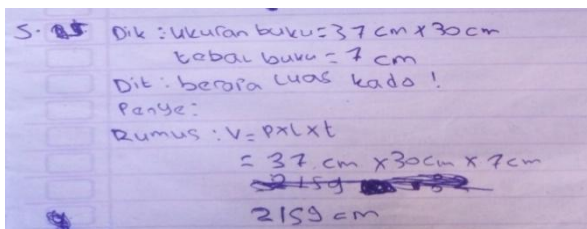 5. Dik : ukuran buku = 37 cm x 30 cm
tebal buku = 7 cm
Dit : berapa luas kado !
Penye :
Rumus : V = PxLxt
= 37 cm x 30 cm x 7 cm
2159 cm